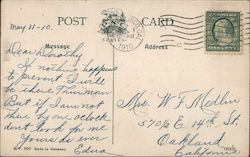 May 31-10.
POST CARD
1910
Message
Address
Dear Dorothy
If nothing happens
to prevent I will
be there Thur now
But if I am not
thur by one o'clock
dont look for me
yours as ever
Edna
Mrs. W. F. Medlin
570½ E 14th St.
Oakland
California
Made in Germany